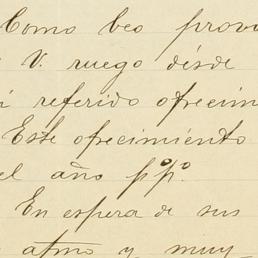 Como veo prov
V. ruego désde
referido ofrecim
Este ofrecimiento
el año ppº.
En espera de sus
atmo y muy